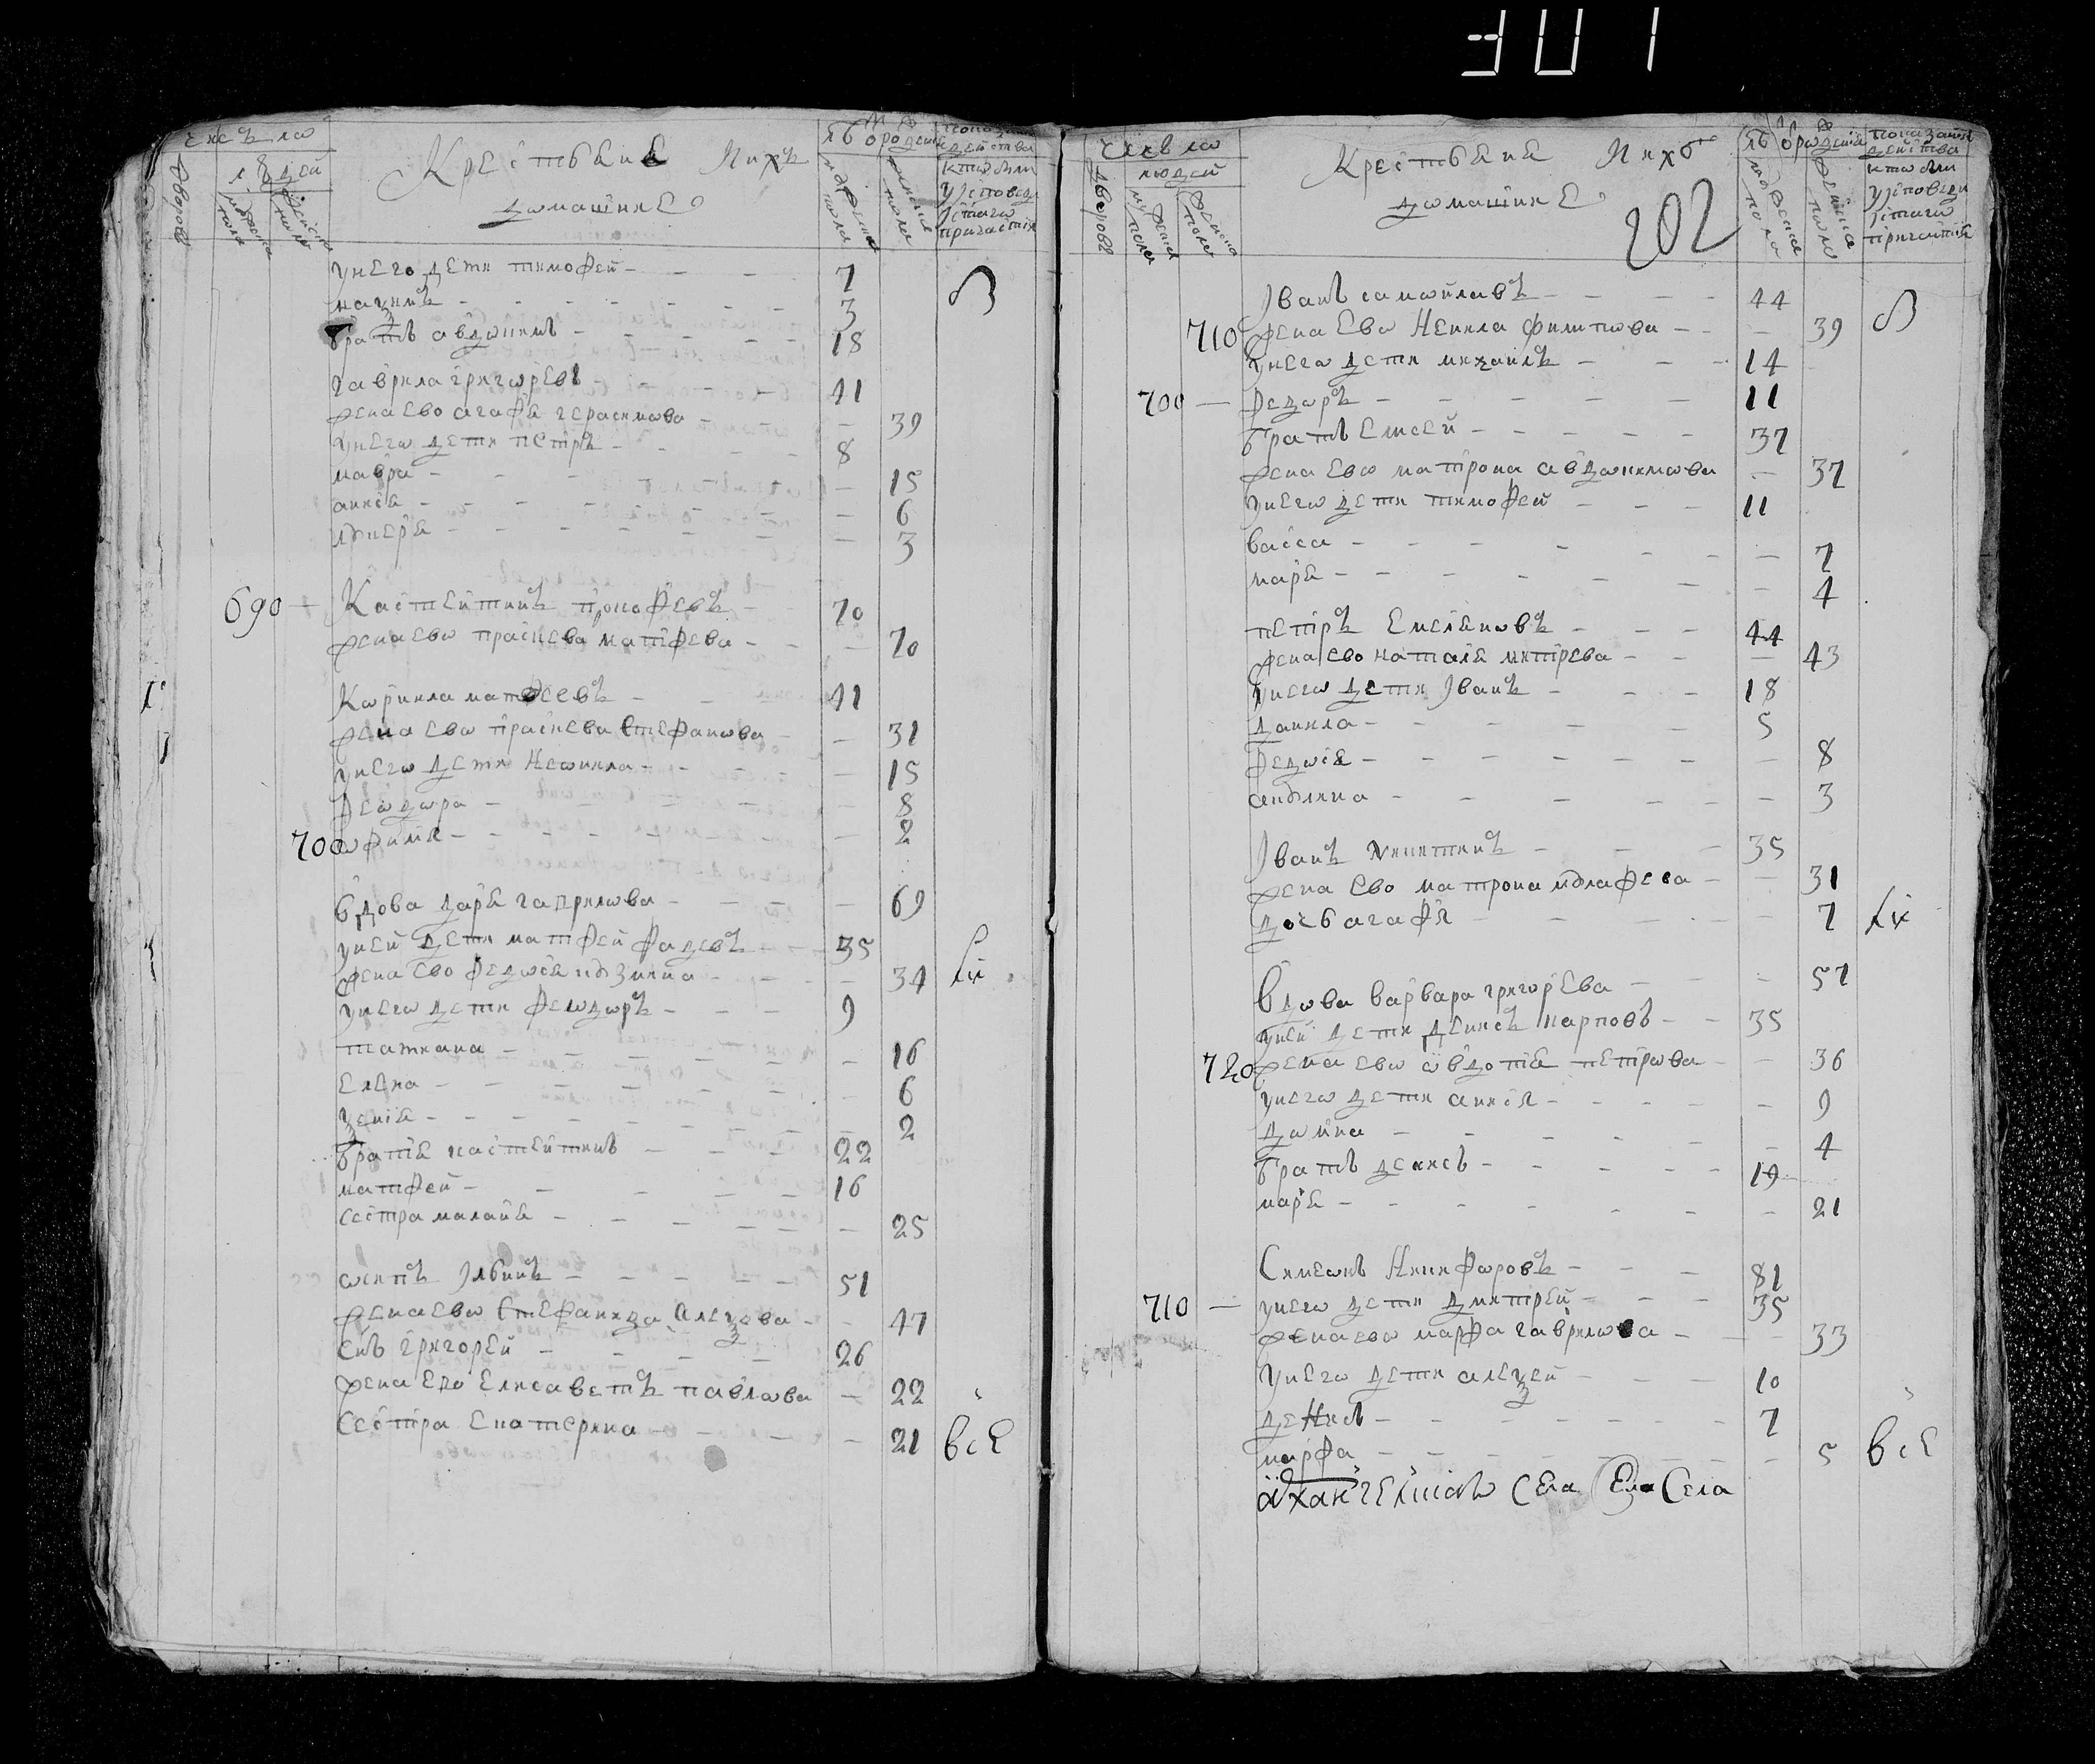 301
число
людей
дворовъ
мужеска пола
женска пола
Крестьяне ихъ
домашние
лѣ отрождения
мужеска пола
женска пола
показание действа
кто были у исповеди и святаго причастия
у него дети тимофей - - - 7
маѯимъ - - - 3
братъ авдокимъ - - - 18
гаврила григоревъ - - - 41
жена ево агафя герасимова - - 39
у него дети петръ - - - 8
мавра - - - 15
анися - - - 6
лукеря - - - 3
690 - Кастентинъ прокофевъ - 70
жена ево праскева матфева - - 70
Корнила матфеевъ - - - 41
жена ево праскева стефанова - - 31
у него дети неонила - - - 15
феодора - - - 8
700 офимя - - - 2
вдова даря гаврилова - - - 69
у ней дети матфей фадевъ - - 35
жена ево федося кузмина - - - 34
у него дети феодоръ - - - 9
татиана - - - 16
елена - - - 6
ѯения - - - 2
братя кастентинъ - - - 22
матфей - - - 16
сестра маланя - - - 25
осипъ ильинъ - - - 51
жена ево стефанида алеѯева - - 47
снъ григорей - - - 26
жена ево елисаветъ павлова - 22
сестра екатерина - - - 21 все
число
людей
дворовъ
мужеска пола
женска пола
Крестьяне ихъ
домашние
202
лѣ отрождения
мужеска пола
женска пола
показание действа
кто были у исповеди и святаго причастия
Iванъ самойлавъ - - - 44
710 жена ево Некила филипова - - 39
у него дети михаилъ - - - 14
700 - федоръ - - - 11
братъ елисей - - - 37
жена ево матрона авдокимова - 37
у него дети тимофей - - - 11
васса - - - 7
маря - - - 4
петръ емеляновъ - - - 44
жена ево наталя митрева - - 43
у него дети Iванъ - - - 18
данила - - - 5
федося - - - 8
акулина - - - 3
Iванъ никитинъ - - - 35
жена ево матрона иблафева - - 31
дочь агафя - - - 7
вдова варвара григорева - - - 57
у ней дети денисъ карповъ - - 35
720 жена ево авдотя петрова - - 36
у него дети анися - - - 9
домна - - - 4
братъ денисъ - - - 19
маря - - - 21
Симеонъ Никифоровъ - - - 81
710 - у него дети дмитрей - - - 35
жена ево марфа гаврилова - - 33
у него дети алеѯей - - - 10
денисъ - - - 7
марфа - - - 5 все